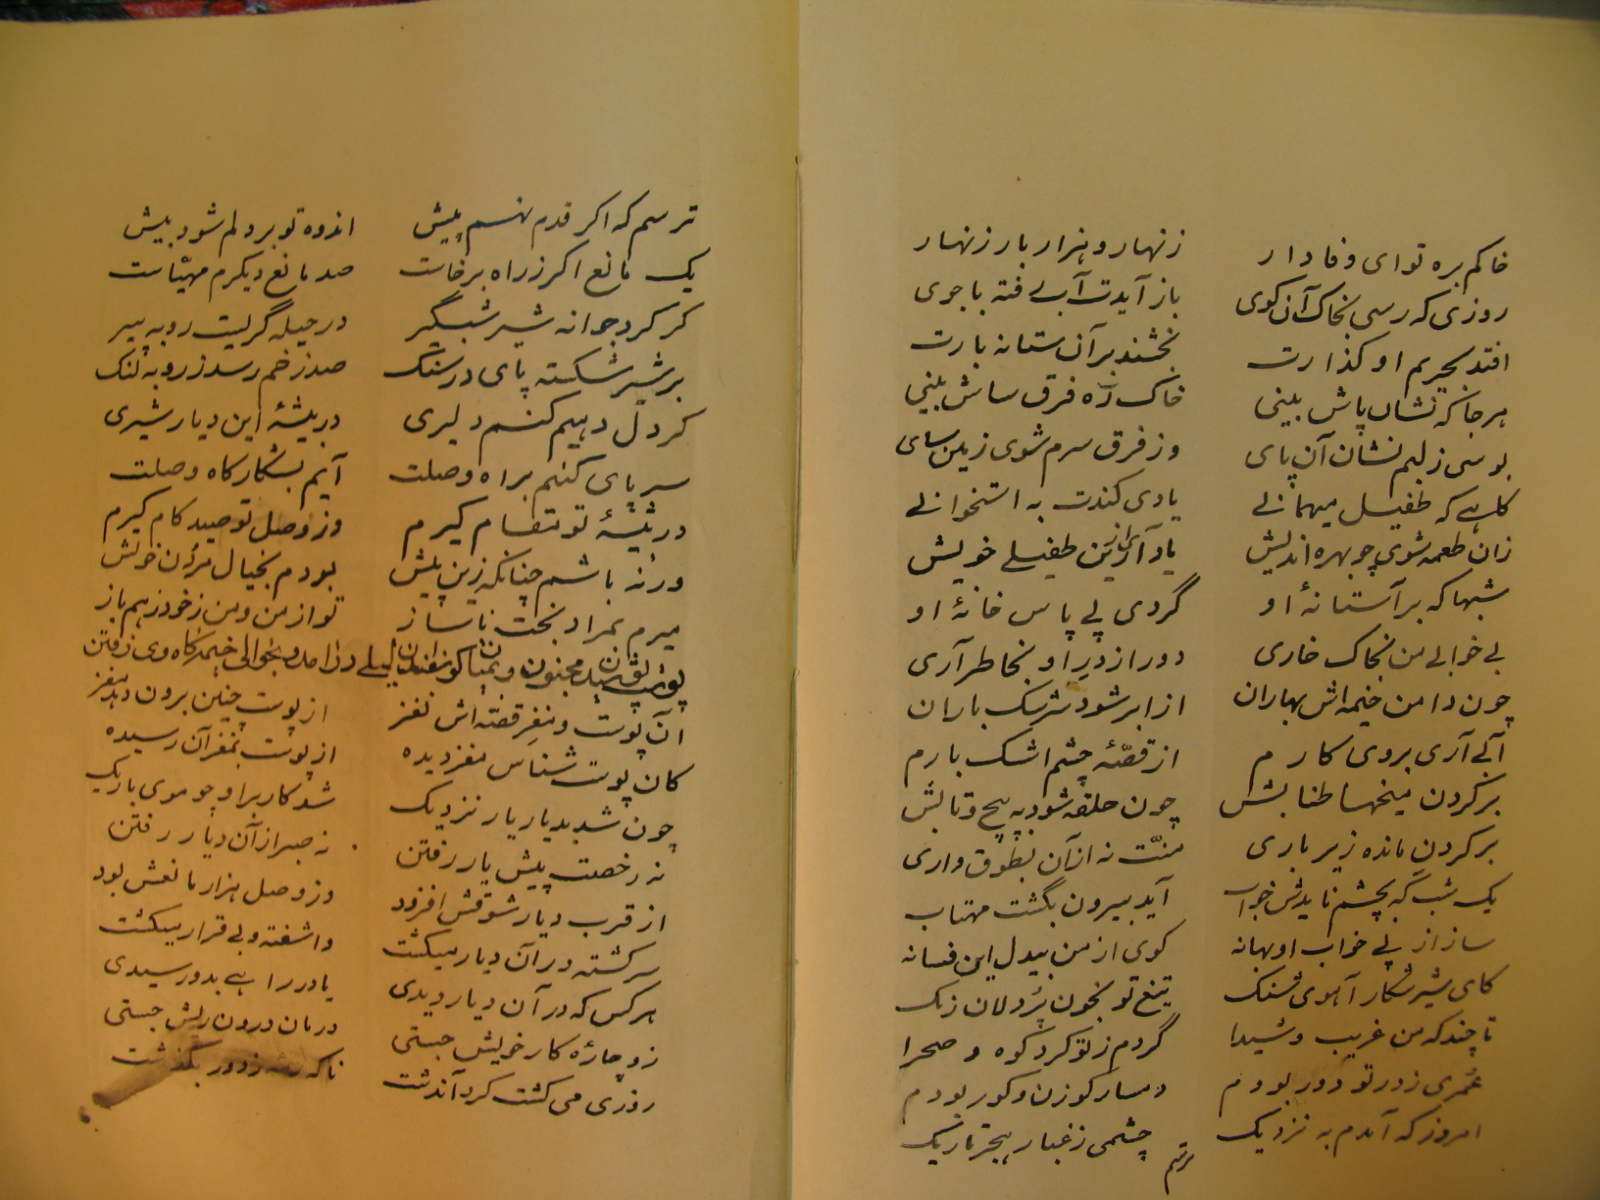 خاکم بره تو ای وفادار زنهار و هزار بار زنهار
روزی که رسی بخاک آن کوی باز آیدت آب رفته با جوی
افتد بحریم او گذارت بخشند بر آن ستانه بارت
هر جا که نشان پاش بینی خاک ره فرق ساش بینی
بوسی ز لبم نشان آن پای وز فرق سرم شوی زمین سای
کاهی که طفیل میهمانی یادی کندت به استخوانی
زان طعمه شوی چو بهره اندیش یاد آر ازین طفیلی خویش
شبها که بر آستانهٔ او گردی پی پاس خانهٔ او
بی خوابی من بخاک خاری دور از در او بخاطر آری
چون دامن خیمه‌اش بهاران از ابر شود سرشک باران
آبی آری بروی کارم از قصّهٔ چشم اشک بارم
بر گردن میخها طنابش چون حلقه شود به پیچ و تابش
بر گردن مانده زیر باری منّت نه از آن بطوق واری
یک شب که بچشم نایدش خواب آید بیرون بگشت مهتاب
ساز از پی خواب او بهانه کوی از من بیدل این فسانه
کای شیر شکار آهوی شنک تیغ تو بخون پر دلان رنک
تا چند که من غریب و شیدا گردم ز تو گرد کوه و صحرا
عمری ز در تو دور بودم دمساز کوزن و کور بودم
امروز که آمدم به نزدیک چشمی ز غبار هجر تاریک
ترسم
ترسم که اکر قدم نهم پیش اندوه تو بر دلم شود بیش
یک مانع اکر ز راه برخاست صد مانع دیکرم مهیّاست
کر کرد جوانه شیر شبگیر در حیله گریست روبه پیر
بر شیر شکسته پای در سنک صد زخم رسد ز روبه لنک
کر دل دهیم کنم دلیری در بیشهٔ این دیار شیری
سر پای کنم براه وصلت آیم بشکار کاه وصلت
در بیشهٔ تو مقام گیرم وز وصل تو صید کام گیرم
ورنه باشم چنانکه زین پیش بودم بخیال مردن خویش
میرم بمراد بخت ناساز تو از من و من ز خود رهم باز
آن پوست و مغز قصّه‌اش نغز از پوست چنین برون دهد مغز
کان پوست شناس مغز دیده از پوست بمغز آن رسیده
چون شد بدیار یار نزدیک شد کار بر او چو موی باریک
نه رخصت پیش یار رفتن نه صبر از آن دیار رفتن
از قرب دیار شوقش افزود وز وصل هزار مانعش بود
سرگشته در آن دیار میکشت واشفته و بی قرار میکشت
هر کس که در آن دیار دیدی یا در راهی بدو رسیدی
زو چارهٔ کار خویش جستی درمان درون ریش جستی
روزی می کشت کرد آن دشت ناکه ز دور بگذشت